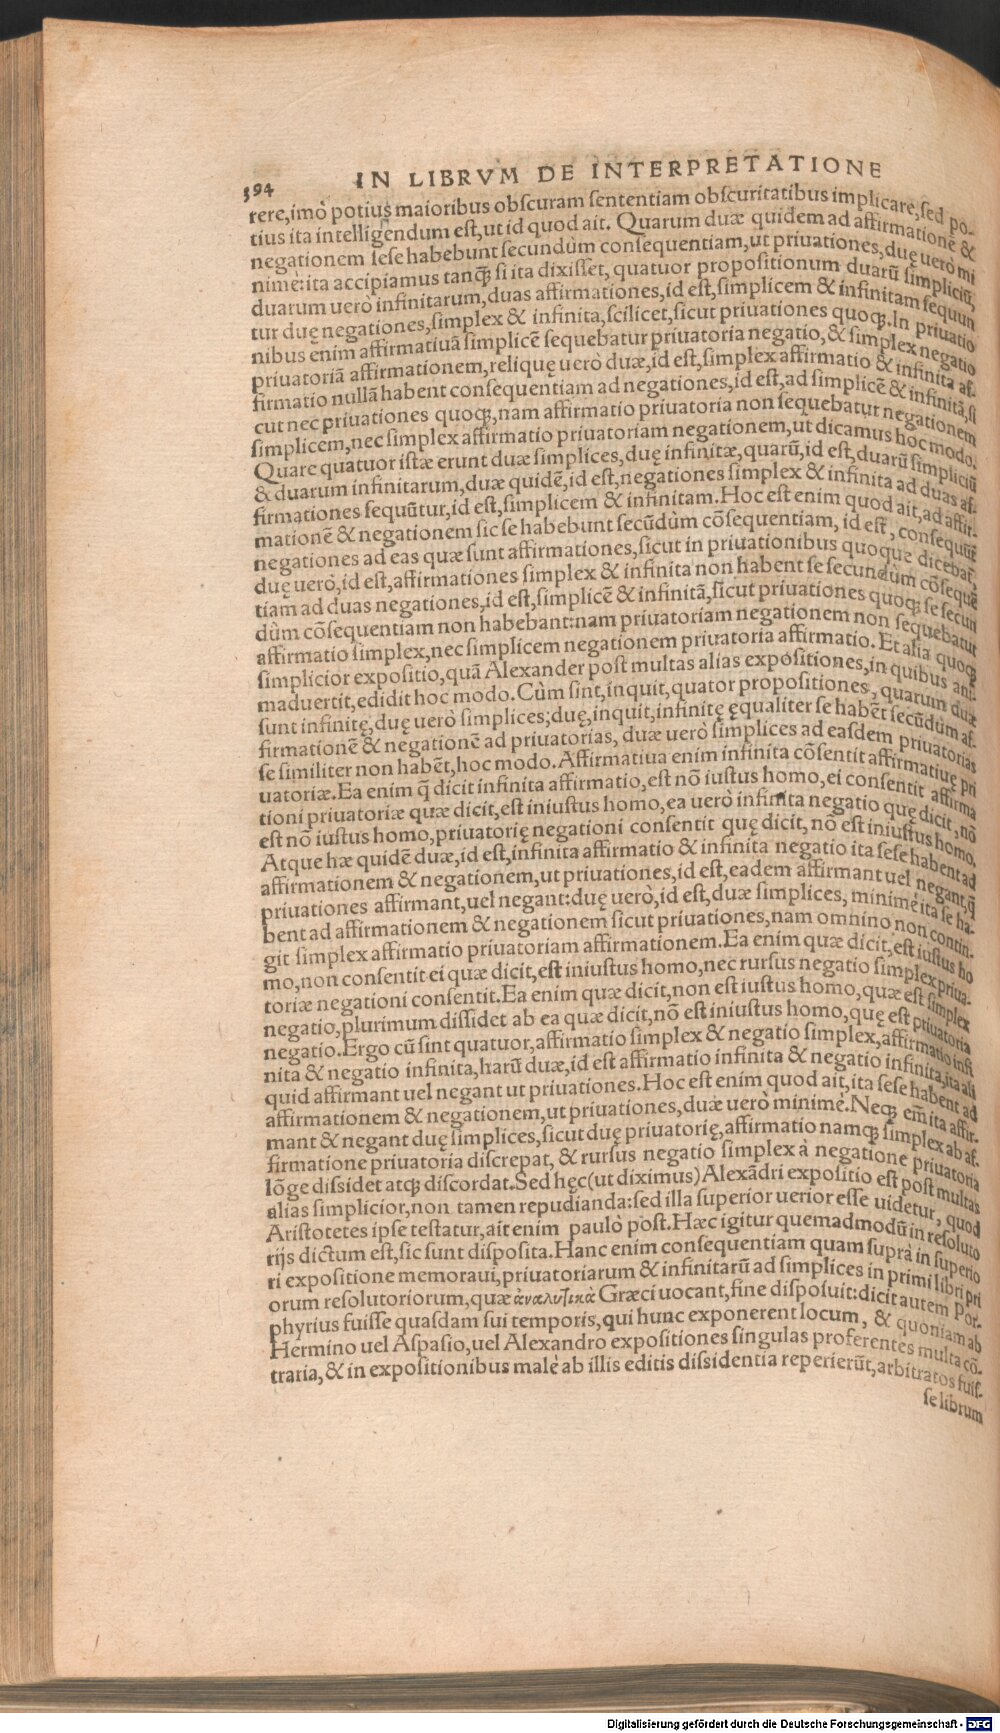 394
IN LIBRVM DE INTERPRETATIONE
rere,imò potius maioribus obscuram sententiam obscuritatibus implicare,sed po-
tius ita intelligendum est,ut id quod ait. Quarum duæ quidem ad affirmationẽ &
negationem sese habebunt secundùm consequentiam,ut priuationes,duę uerò mi
nimè:ita accipiamus tanq̃ si ita dixisset, quatuor propositionum duarũ simpliciũ,
duarum uerò infinitarum,duas affirmationes,id est,simplicem & infinitam sequun
tur duę negationes,simplex & infinita,scilicet,sicut priuationes quoq;.In priuatio
nibus enim affirmatiuã simplicẽ sequebatur priuatoria negatio,& simplex negatio
priuatoriã affirmationem,reliquę uerò duæ,id est,simplex affirmatio & infinita af-
firmatio nullã habent consequentiam ad negationes,id est,ad simplicẽ & infinitã,si
cut nec priuationes quoq;,nam affirmatio priuatoria non sequebatur negationem
simplicem,nec simplex affirmatio priuatoriam negationem,ut dicamus hoc modo.
Quare quatuor istæ erunt duæ simplices,duę infinitæ,quarũ,id est,duarũ simpliciũ
& duarum infinitarum,duæ quidẽ,id est,negationes simplex & infinita ad duas af-
firmationes sequũtur,id est,simplicem & infinitam.Hoc est enim quod ait,ad affir-
mationẽ & negationem sic se habebunt secũdùm cõsequentiam, id est, consequũt̃
negationes ad eas quæ sunt affirmationes,sicut in priuationibus quoque dicebat̃,
duę uerò,id est,affirmationes simplex & infinita non habent se secundùm cõsequẽ
tiam ad duas negationes,id est,simplicẽ & infinitã,sicut priuationes quoq; se secun
dùm cõsequentiam non habebant:nam priuatoriam negationem non sequebatur
affirmatio simplex,nec simplicem negationem priuatoria affirmatio. Et alia quoq;
simplicior expositio,quã Alexander post multas alias expositiones,in quibus ani-
maduertit,edidit hoc modo.Cùm sint,inquit,quator propositiones, quarum duæ
sunt infinitę,duę uerò simplices;duę,inquit,infinitę ęqualiter se habẽt secũdùm af-
firmationẽ & negationẽ ad priuatorias, duæ uerò simplices ad easdem priuatorias
se similiter non habẽt,hoc modo.Affirmatiua enim infinita cõsentit affirmatiuę pri
uatoriæ.Ea enim q̃ dicit infinita affirmatio,est nõ iustus homo,ei consentit affirma
tioni priuatoriæ quæ dicit,est iniustus homo,ea uerò infinita negatio quę dicit,nõ
est nõ iustus homo,priuatorię negationi consentit quę dicit,nõ est iniustus homo,
Atque hæ quidẽ duæ,id est,infinita affirmatio & infinita negatio ita sese habent ad
affirmationem & negationem,ut priuationes,id est,eadem affirmant uel negant,q̃
priuationes affirmant,uel negant:duę uerò,id est,duæ simplices, minimè ita se ha-
bent ad affirmationem & negationem sicut priuationes,nam omnino non contin-
git simplex affirmatio priuatoriam affirmationem.Ea enim quæ dicit,est iustus ho
mo,non consentit ei quæ dicit,est iniustus homo,nec rursus negatio simplex priua-
toriæ negationi consentit.Ea enim quæ dicit,non est iustus homo,quæ est simplex
negatio,plurimum dissidet ab ea quæ dicit,nõ est iniustus homo,quę est priuatoria
negatio.Ergo cũ sint quatuor,affirmatio simplex & negatio simplex,affirmatio infi
nita & negatio infinita,harũ duæ,id est affirmatio infinita & negatio infinita,ita ali
quid affirmant uel negant ut priuationes.Hoc est enim quod ait,ita sese habent ad
affirmationem & negationem,ut priuationes,duæ uerò minimè.Neq; em̃ ita affir-
mant & negant duę simplices,sicut duę priuatorię,affirmatio namq; simplex ab af.
firmatione priuatoria discrepat, & rursus negatio simplex à negatione priuatoria
lõge dissidet atq; discordat.Sed hęc(ut diximus)Alexãdri expositio est post multas
alias simplicior,non tamen repudianda:sed illa superior uerior esse uidetur, quod
Aristotetes ipse testatur,ait enim paulò post.Hæc igitur quemadmodũ in resoluto
rijs dictum est,sic sunt disposita.Hanc enim consequentiam quam suprà in superio
ri expositione memoraui,priuatoriarum & infinitarũ ad simplices in primi libri pri
orum resolutoriorum,quæ ἀναλυτικὰ Græci uocant,fine disposuit:dicit autem Por-
phyrius fuisse quasdam sui temporis,qui hunc exponerent locum, & quoniam ab
Hermino uel Aspasio,uel Alexandro expositiones singulas proferentes multa cõ-
traria,& in expositionibus malè ab illis editis dissidentia reperierũt,arbitratos fuis-
se librum
Digitalisierung gefördert durch die Deutsche Forschungsgemeinschaft - DFG